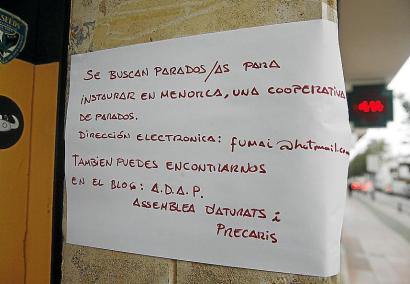 SE BUSCAN PARADOS/AS PARA
INSTAURAR EN MENORCA, UNA COOPERATIVA
DE PARADOS.
DIRECCIÓN ELECTRONICA: fumai@hotmail.com
TAMBIEN PUEDES ENCONTRARNOS
EN EL BLOG: A.D.A.P.
ASSEMBLEA D'ATURATS i
PRECARIS